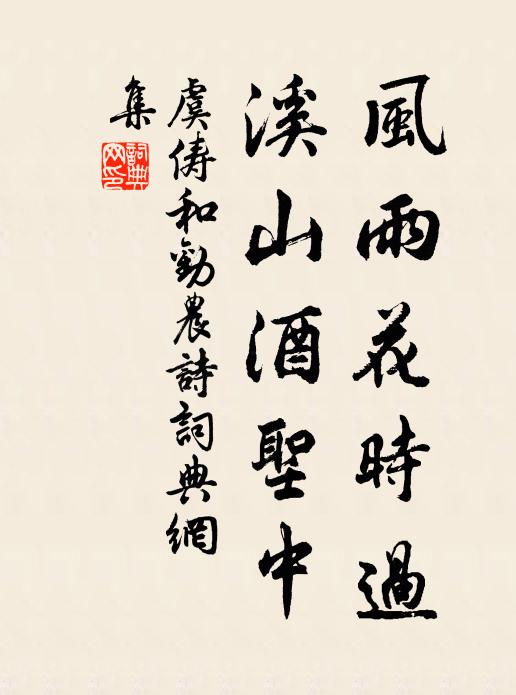 風雨花時過
溪山酒聖中
虞儔和勸農詩詞典網
集
詞典網印